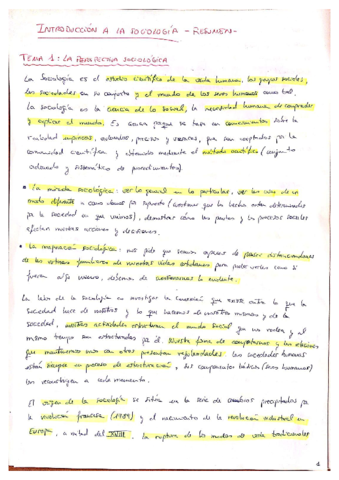 INTRODUCCIÓN A LA SOCIOLOGÍA - RESUMEN-
TEMA 1: LA PERSPECTIVA SOCIOLÓGICA
La Sociología es el estudio científico de la vida humana, los grupos sociales,
las sociedades en su conjunto y el mundo de los seres humanos como tal.
La sociología es la ciencia de lo social, la necesidad humana de comprender
y explicar el mundo. Es ciencia porque se basa en conocimientos sobre la
realidad empíricos, ordenados, precisos y veraces, que son aceptados por la
comunidad científica y obtenidos mediante el método científico (conjunto
ordenado y sistemático de procedimientos).
• La mirada sociológica: ver lo general en lo particular, ver las cosas de un
modo diferente a como damos por supuesto (sostener que los hechos están determinados
por la sociedad en que vivimos), demostrar cómo las pautas y los procesos sociales
afectan nuestras acciones y decisiones.
• La imaginación sociológica: nos pide que seamos capaces de poder distanciarnos
de las rutinas familiares de nuestras vidas cotidianas para poder verlas como si
fueran algo nuevo, además de cuestionarnos lo evidente.
La labor de la Sociología es investigar la conexión que existe entre lo que la
sociedad hace de nosotros y lo que hacemos de nosotros mismos y de la
sociedad, nuestras actividades estructuran el mundo social que nos rodea y al
mismo tiempo son estructuradas por él. Nuestra forma de comportarnos y las relaciones
que mantenemos unos con otros presentan regularidades. Las sociedades humanas
están siempre en proceso de estructuración, sus componentes básicos (seres humanos)
las reconstruyen a cada momento.
El origen de la sociología se sitúa en la serie de cambios precipitados por
la revolución francesa (1789) y el nacimiento de la revolución industrial en
Europa, a mitad del XVIII. La ruptura de los modos de vida tradicionales
1